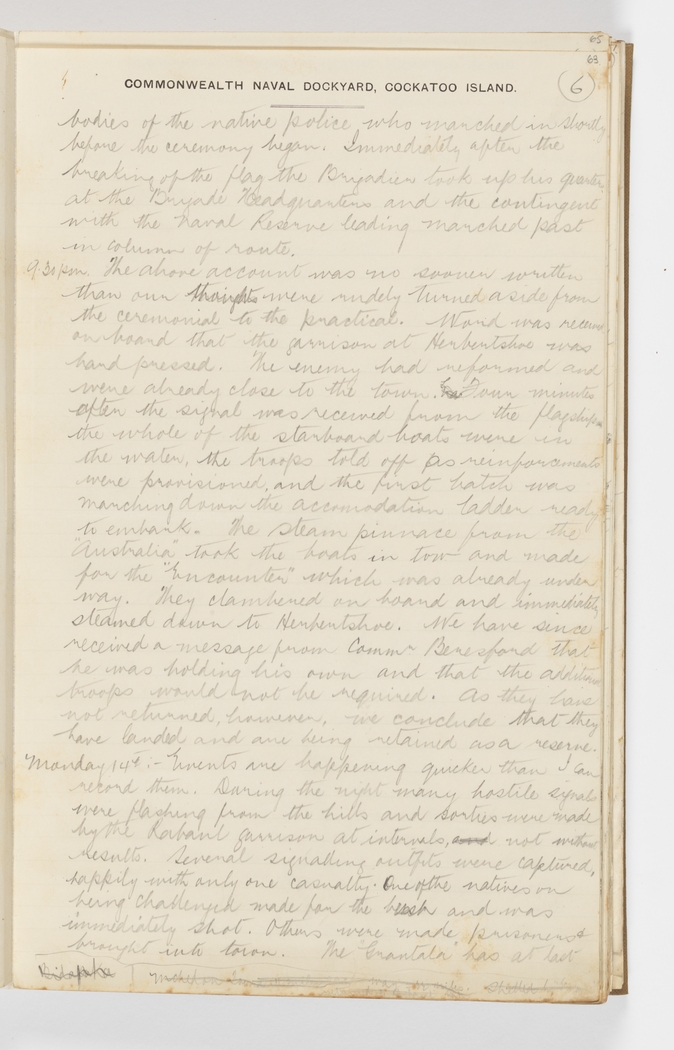 65
63
6
COMMONWEALTH NAVAL DOCKYARD, COCKATOO ISLAND.
bodies of the native police who marched in shortly
before the ceremony began. Immediately after the
breaking of the flag the Brigadier took up his quarters
at the Brigade Headquarters and the contingent
with the Naval Reserve leading marched past
in column of route.
9.30 pm. The above account was no sooner written
than our thoughts were rudely turned aside from
the ceremonial to the practical. Word was received
on board that the garrison at Herbertshoe was
hard pressed. The enemy had reformed and
were already close to the town. Four minutes
after the signal was received from the flagship
the whole of the starboard boats were in
the water, the troops told off as reinforcements
were provisioned, and the first batch was
marching down the accomodation ladder ready
to embark. The steam pinnace from the
"Australia" took the boats in tow and made
for the "Encounter" which was already under
way. They clambered on board and immediately
steamed down to Herbertshoe. We have since
received a message from Commr Beresford that
he was holding his own and that the addition
troops would not be required. As they have
not returned, however, we conclude that they
have landed and are being retained as a reserve.
Monday 14th:- Events are happening quicker than I can
record them. During the night many hostile signals
were flashing from the hills and sorties were made
by the Rabaul garrison at intervals, and not without
results. Several signalling outfits were captured,
happily with only one casualty. One of the natives on
being challenged made for the bush and was
immediately shot. Others were made prisoners &
brought into town. The "Grantala" has at last